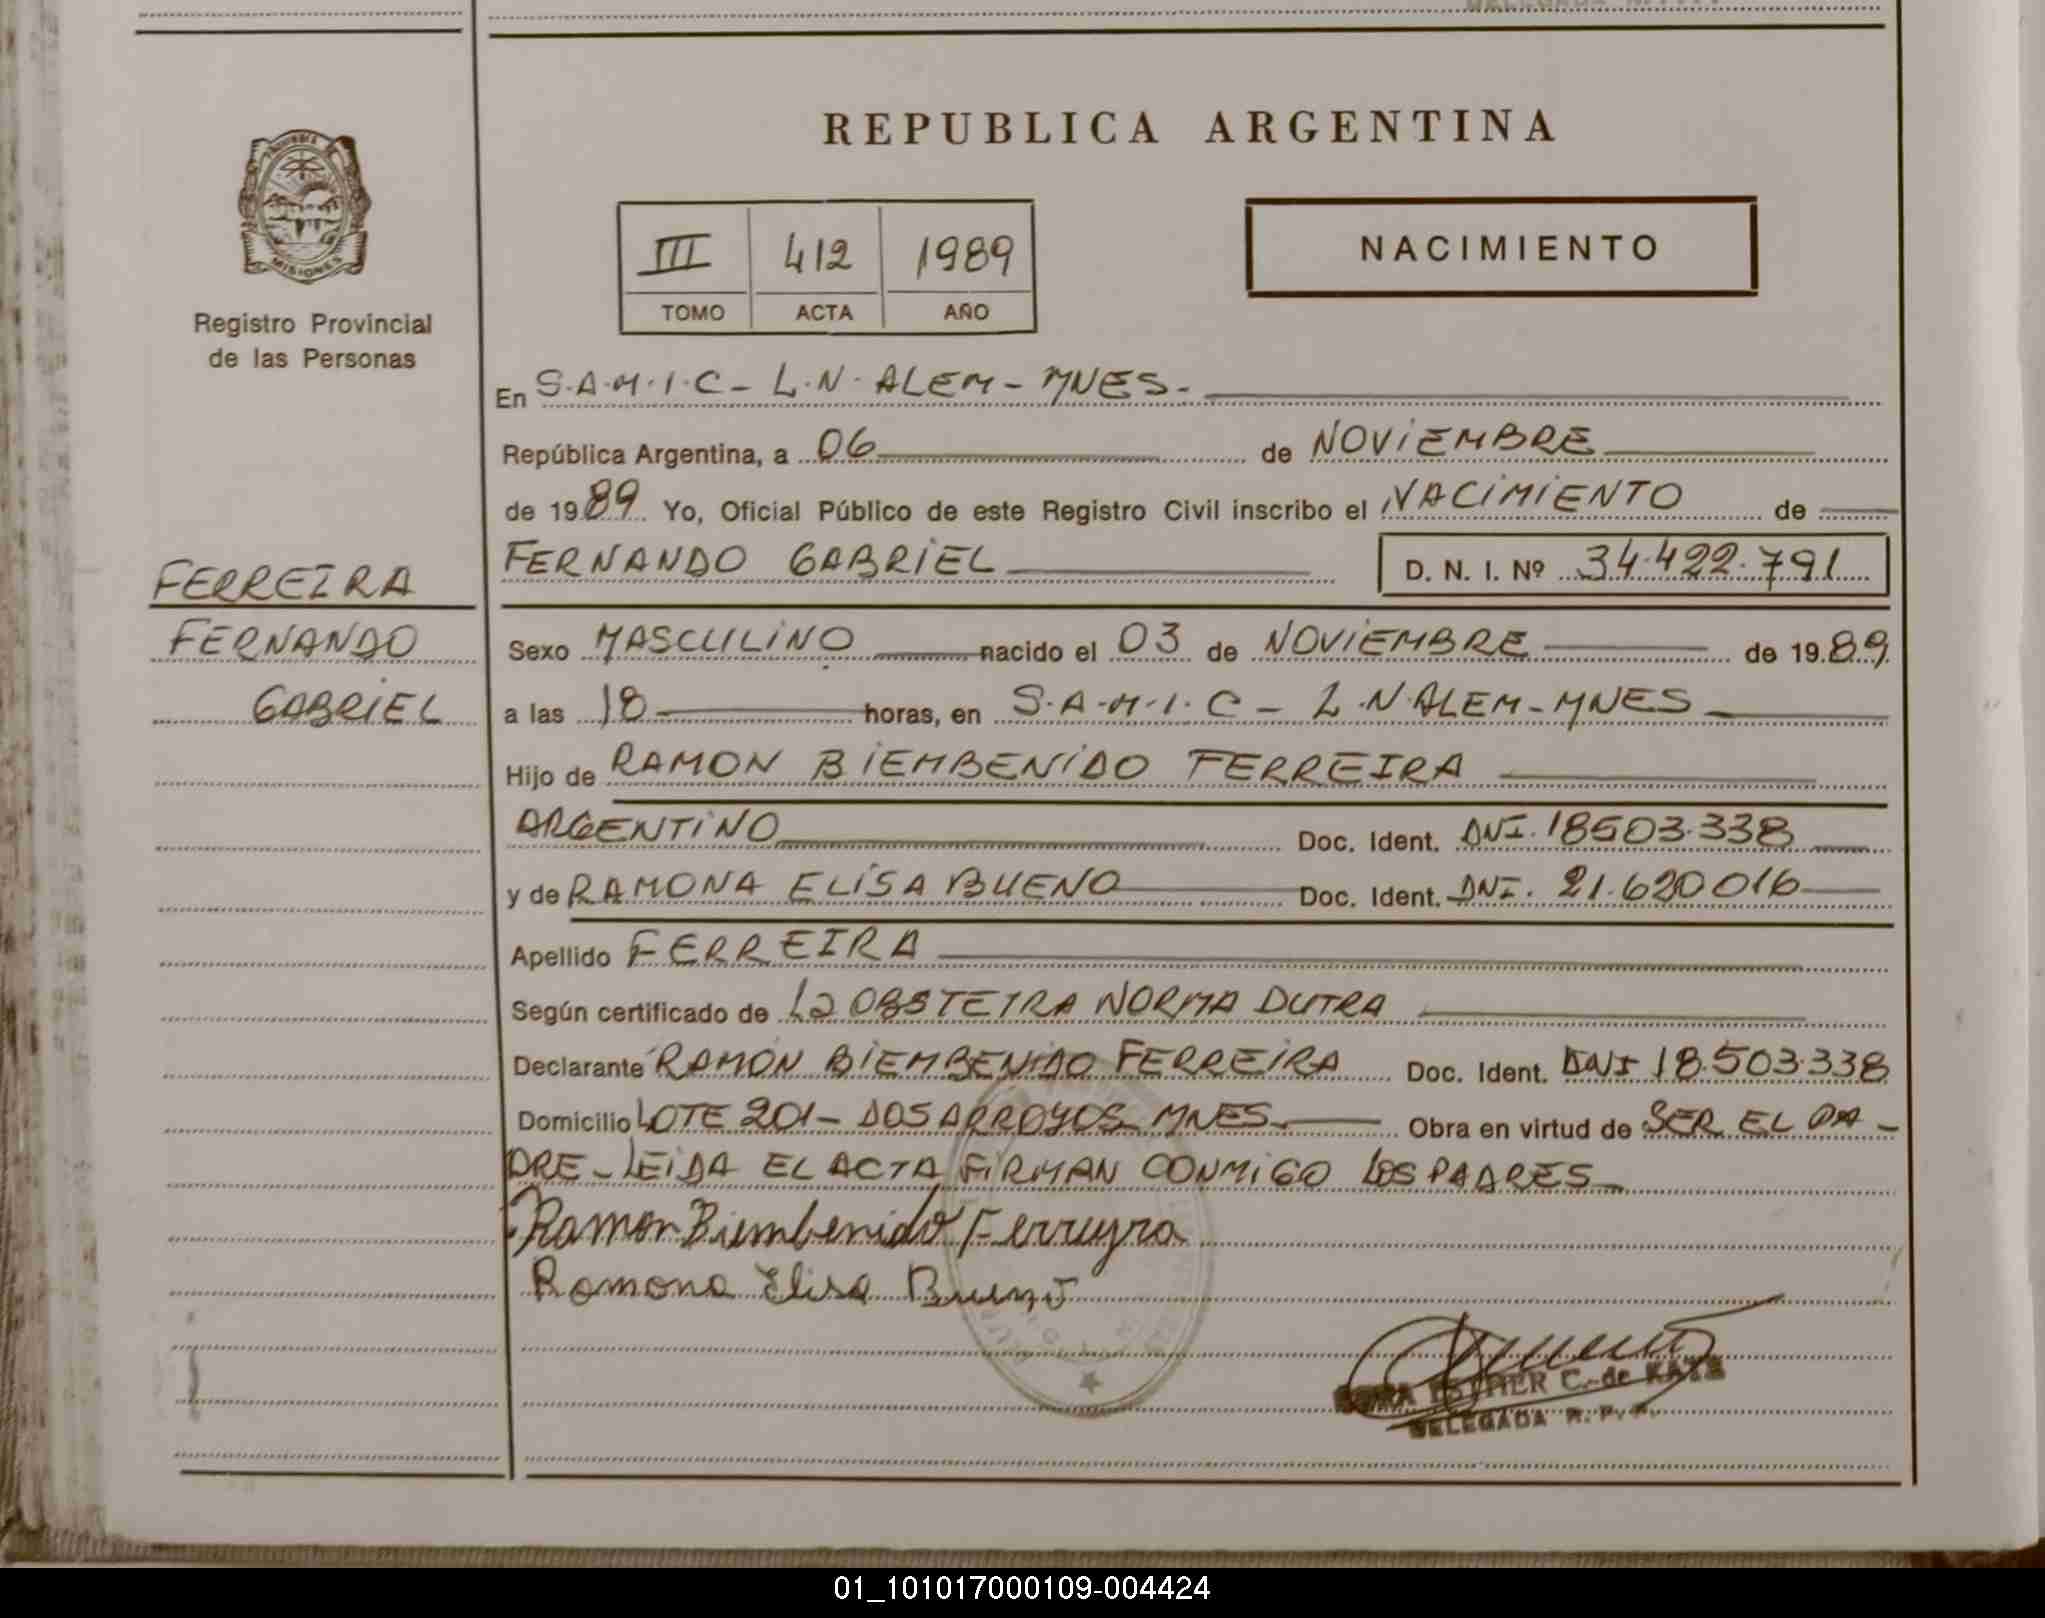 REPUBLICA ARGENTINA
MISIONES
Registro Provincial
de las Personas
III 412 1989
TOMO ACTA AÑO
NACIMIENTO
En S.A.M.I.C - L.N. ALEM - MNES.
República Argentina, a 06 de NOVIEMBRE
de 1989 Yo, Oficial Público de este Registro Civil inscribo el NACIMIENTO de
FERNANDO GABRIEL D. N. I. Nº 34.422.791
FERREIRA
FERNANDO
GABRIEL
Sexo MASCULINO nacido el 03 de NOVIEMBRE de 1989
a las 18 horas, en S.A.M.I.C - L.N. ALEM - MNES
Hijo de RAMON BIEMBENIDO FERREIRA
ARGENTINO Doc. Ident. DNI. 18503.338
y de RAMONA ELISA BUENO Doc. Ident. DNI. 21.620016
Apellido FERREIRA
Según certificado de La OBSTETRA NORMA DUTRA
Declarante RAMÓN BIEMBENIDO FERREIRA Doc. Ident. DNI 18.503.338
Domicilio LOTE 201 - DOS ARROYOS MNES Obra en virtud de SER EL PA-
DRE - LEIDA EL ACTA FIRMAN CONMIGO LOS PADRES
Ramon Biembenido Ferreyra
Ramona Elisa Bueno
ESTHER C. de KATZ
DELEGADA R. P. P.
01_101017000109-004424